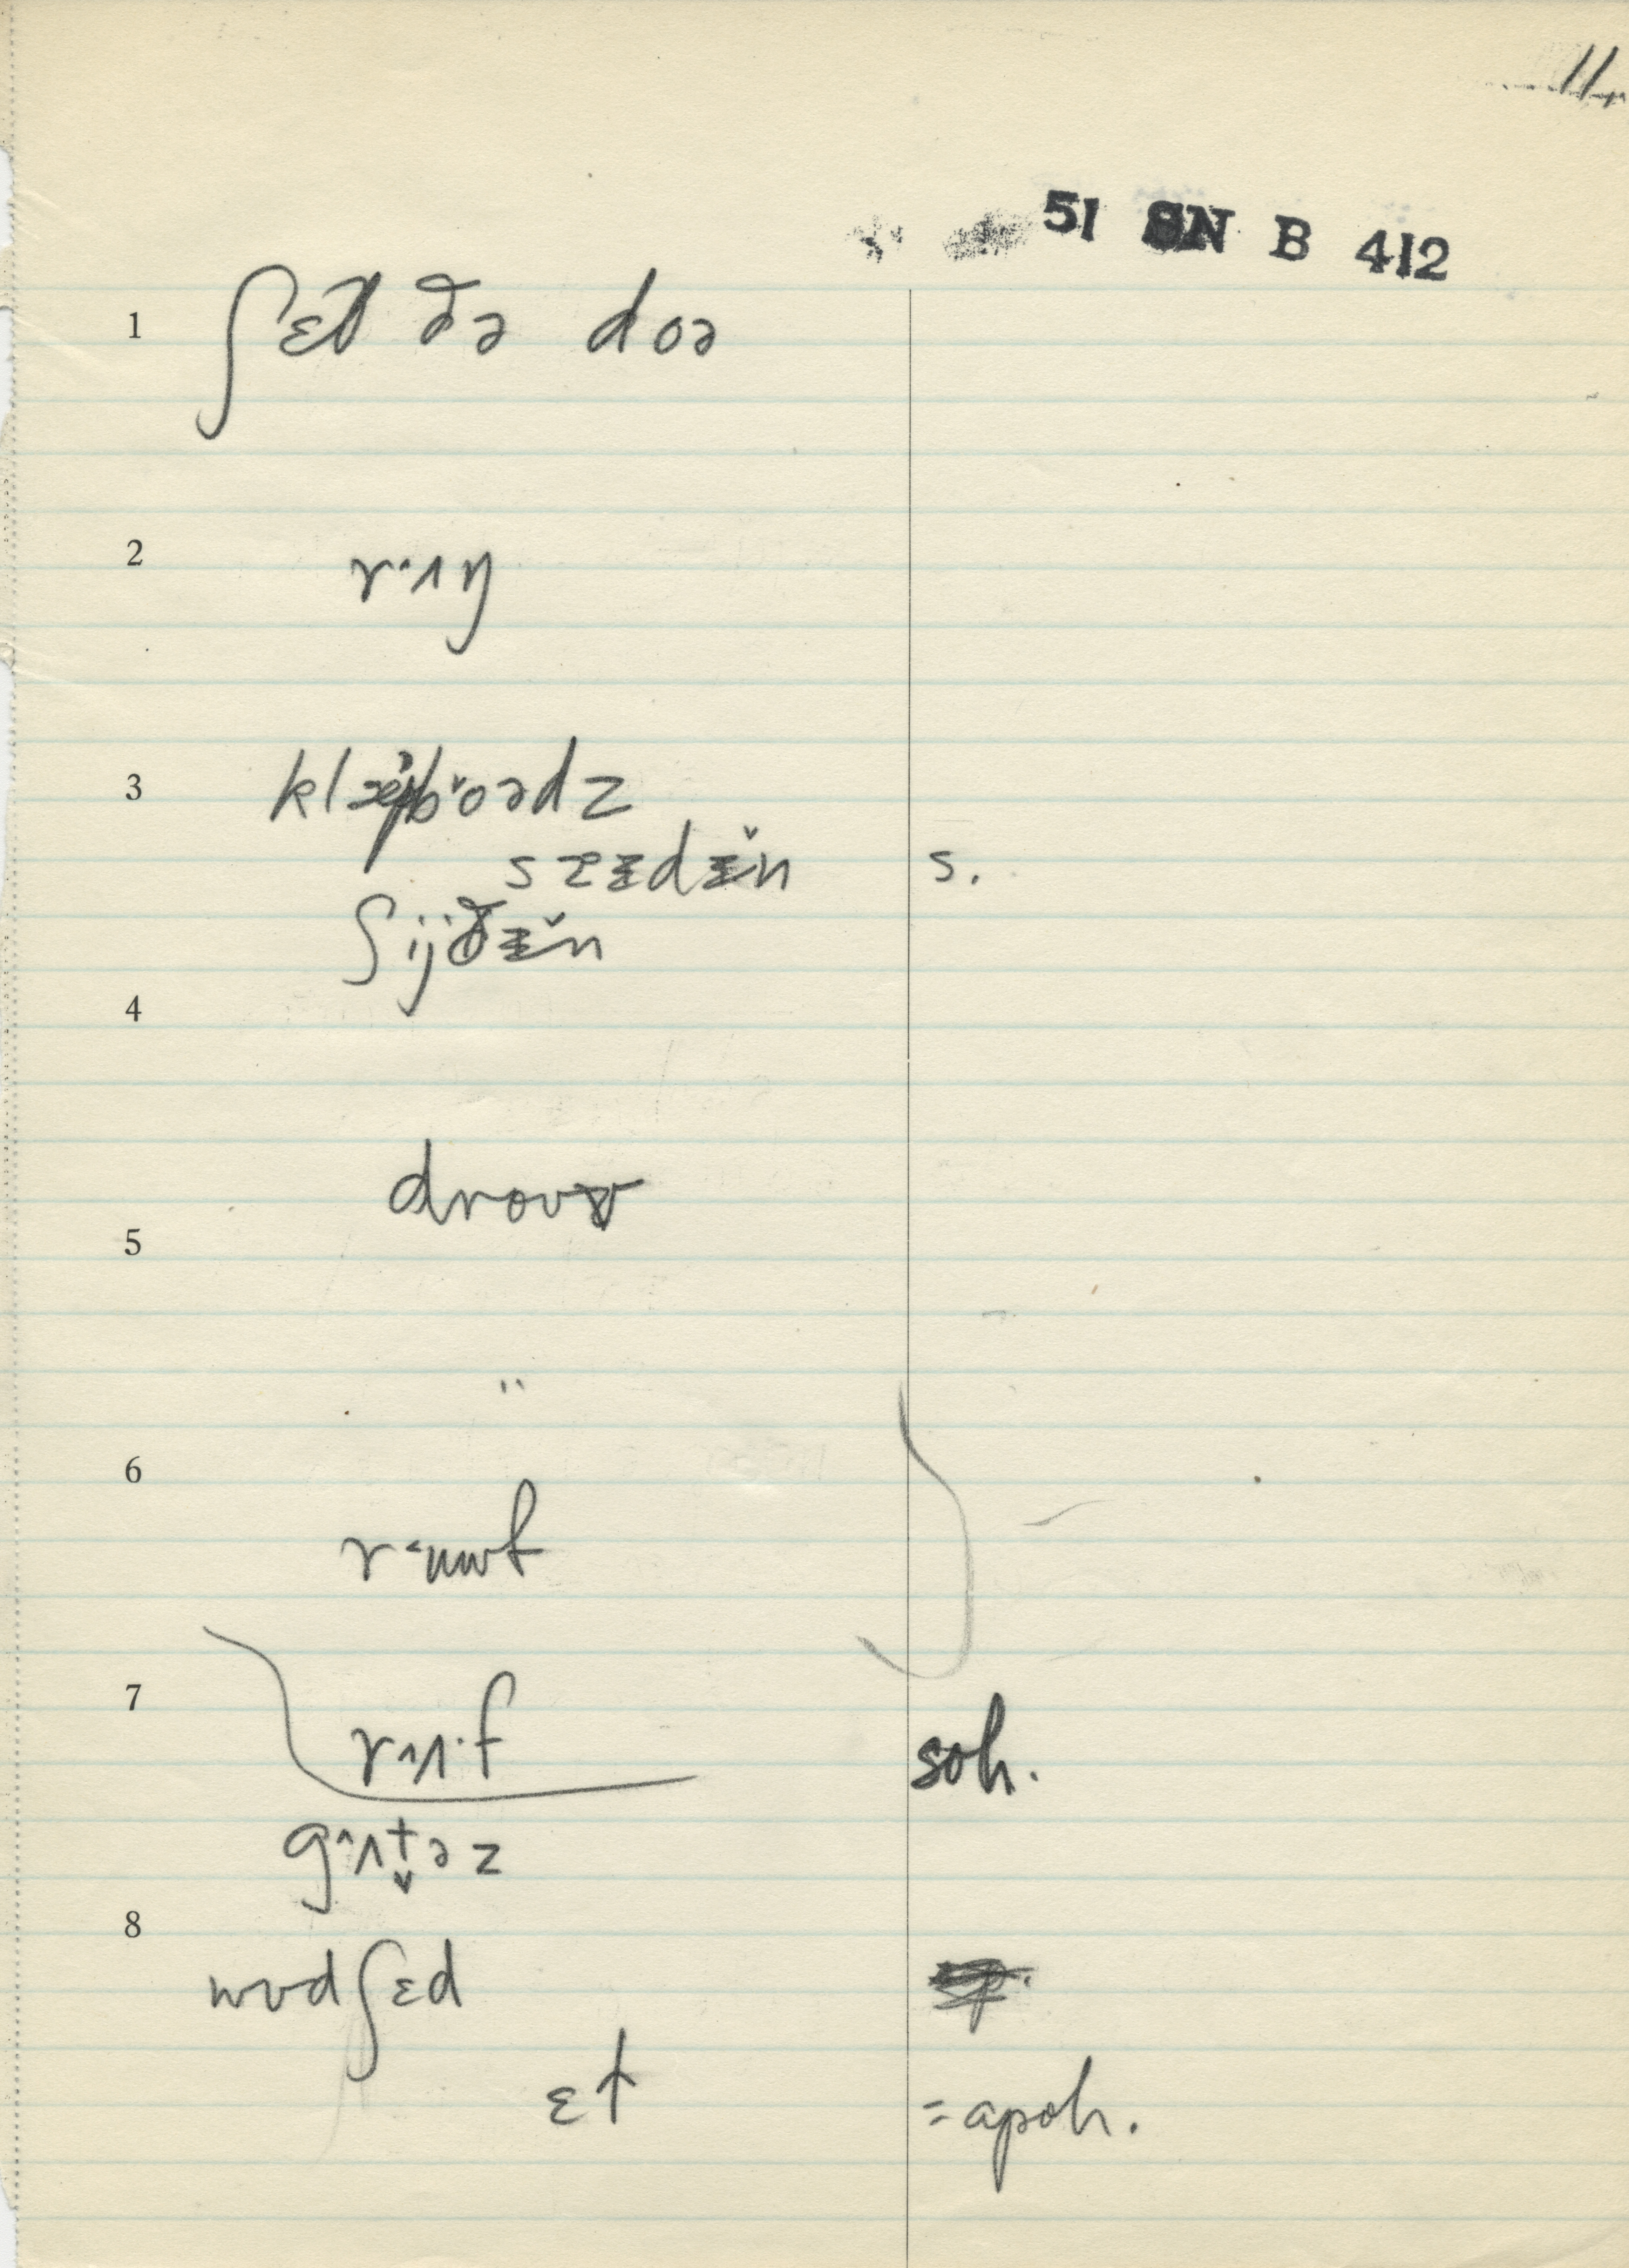 11
51 SN B 412
1 ʃɛt ðə doə
2 r·ʌŋ
3 klæpboədz
sɪdɪ̆n s.
ʃijðɪ̆n
4
drouv
5
"
6
r˂uwf
7
rʌ·f soh.
gʌt̬əz
8
wudʃɛd
ɛt =apoh.